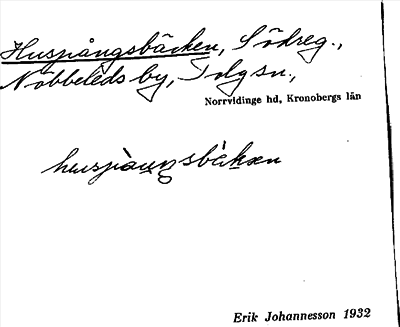 Husjångsbäcken, Sökreg.,
Nöbbeleds by, Tolgsn.,
Norrvidinge hd, Kronobergs län
husjàuŋsbàkən
Erik Johannesson 1932